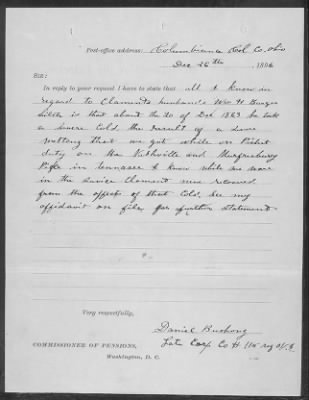 Post-office address: Columbiana Col. Co. Ohio
Dec 26th, 1886
SIR:
In reply to your request I have to state that all I know in
regard to Claments husbands Wm H
is that about the 20 of Dec 1863 he took
a severe Cold, the result of a
wetting that we got while on Picket
duty on the Nashville and Murfreesboro
Pike in Tennessee I know while we were
in the service Clament never recovered
from the effects of that Cold. See my
affidavit on file for further statement
Very respectfully,
Daniel Bushong
Late Corp Co H 115 reg O.V.I.
COMMISSIONER OF PENSIONS,
Washington, D. C.